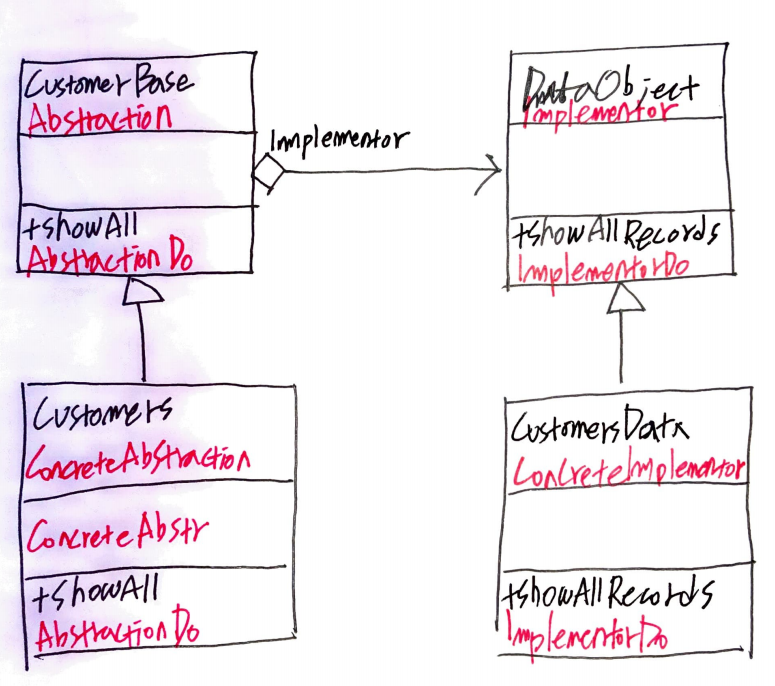 CustomerBase
Abstraction
Implementor
DataObject
Implementor
+showAll
AbstractionDo
+showAllRecords
ImplementorDo
Customers
ConcreteAbstraction
ConcreteAbstr
+showAll
AbstractionDo
CustomersData
ConcreteImplementor
+showAllRecords
ImplementorDo